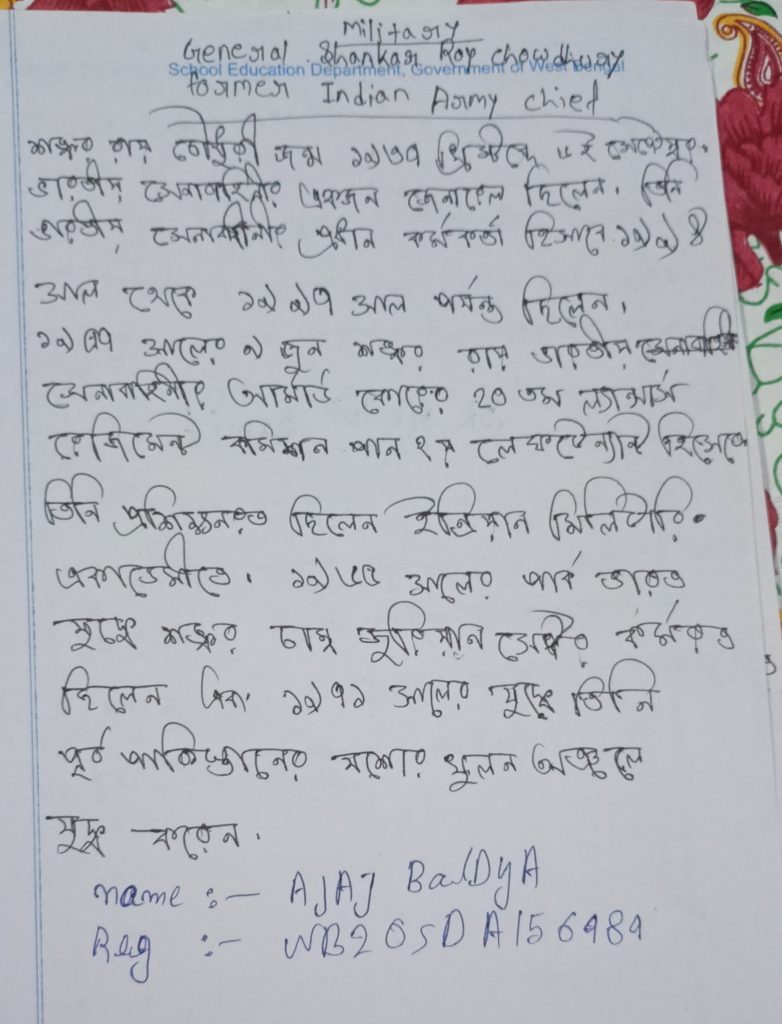 Military
General Shankar Roy Chowdhury
School Education Department, Government of West Bengal
former Indian Army chief
শঙ্কর রায় চৌধুরী জন্ম ১৯৩৭ খ্রিস্টাব্দে ৬ই সেপ্টেম্বর.
ভারতীয় সেনাবাহিনীর একজন জেনারেল ছিলেন. তিনি
ভারতীয় সেনাবাহিনীর প্রধান কর্মকর্তা হিসাবে ১৯৯৪
সাল থেকে ১৯৯৭ সাল পর্যন্ত ছিলেন.
সালের ৯ জুন শঙ্কর রায় ভারতীয়
সেনাবাহিনীর আর্মার্ড কোরের ২০ তম ল্যান্সার্স
রেজিমেন্ট কমিশন পান ২য় লেফটেন্যান্ট হিসেবে
তিনি প্রশিক্ষনরত ছিলেন ইন্ডিয়ান মিলিটারি.
একাডেমীতে. ১৯৬৫ সালের পাক ভারত
যুদ্ধে শঙ্কর চাম্ব জুরিয়ান সেক্টর কর্মরত
ছিলেন এবং ১৯৭১ সালের যুদ্ধে তিনি
পূর্ব পাকিস্তানের যশোর খুলন অঞ্চলে
যুদ্ধ করেন.
name :- AJAJ BaIDyA
Reg :- WB20SDA156989